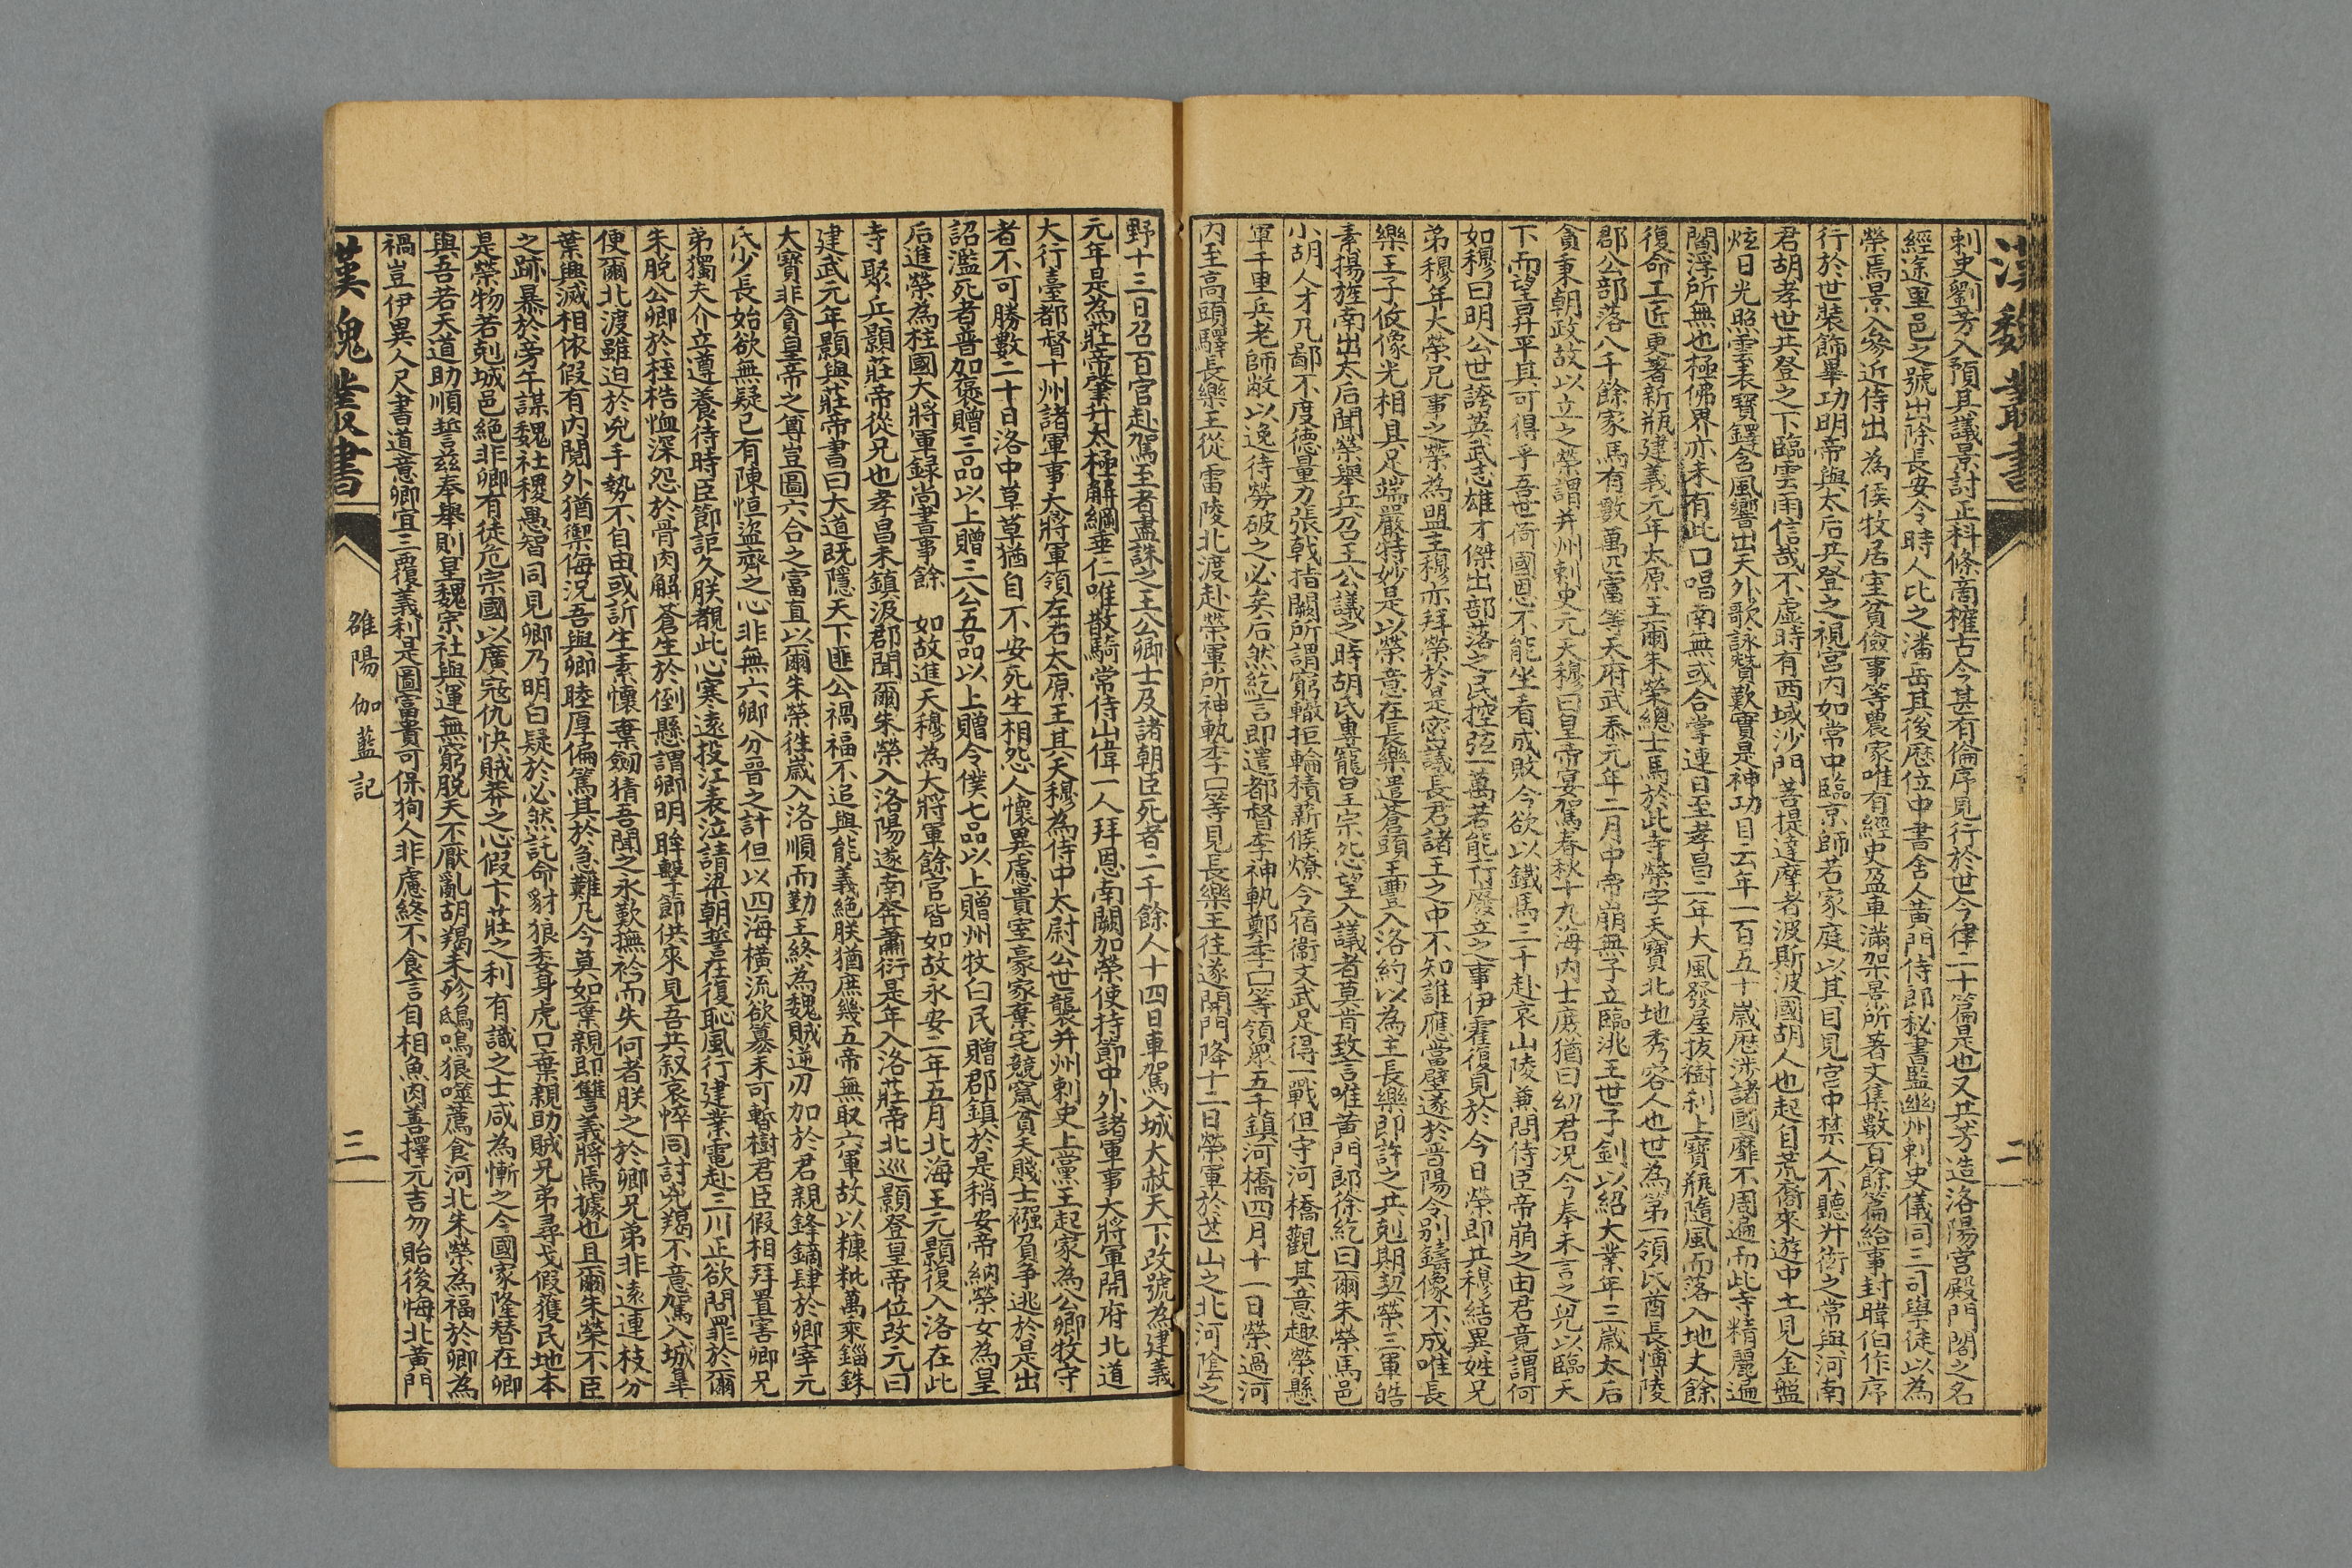 漢魏叢書
二
刺史劉芳入預其議景討正科條商榷古今甚有倫序見行於世今律二十篇是也又共芳造洛陽宮殿門閣之名
經途里邑之號出除長安令時人比之潘岳其後歷位中書舍人黃門侍郎秘書監幽州刺史儀同三司學徒以為
榮焉景入參近侍出為侯牧居室貧儉事等農家唯有經史盈車滿架景所著文集數百餘篇給事封暐伯作序
行於世裝飾畢功明帝與太后共登之視宮內如掌中臨京師若家庭以其目見宮中禁人不聽升衒之常與河南
君胡孝世共登之下臨雲雨信哉不虛時有西域沙門菩提達摩者波斯波國胡人也起自荒裔來遊中土見金盤
炫日光照雲表寶鐸含風響出天外歌詠贊歎實是神功自云年一百五十歲歷涉諸國靡不周遍而此寺精麗遍
閻浮所無也極佛界亦未有此口唱南無或合掌連日至孝昌二年大風發屋拔樹利上寶瓶隨風而落入地丈餘
復命工匠更著新瓶建義元年太原王爾朱榮總士馬於此寺榮字天寶北地秀容人也世為第一領民酋長博陵
郡公部落八千餘家馬有數萬匹富等天府武泰元年二月中帝崩無子立臨洮王世子釗以紹大業年三歲太后
貪秉朝政故以立之榮謂并州刺史元天穆曰皇帝宴駕春秋十九海內士庶猶曰幼君況今奉未言之兒以臨天
下而望昇平其可得乎吾世荷國恩不能坐看成敗今欲以鐵馬三千赴哀山陵兼問侍臣帝崩之由君竟謂何
如穆曰明公世誇英武志雄才傑出部落之民控弦一萬若能行廢立之事伊霍復見於今日榮即共穆結異姓兄
弟穆年大榮兄事之榮為盟主穆亦拜榮於是密議長君諸王之中不知誰應當璧遂於晉陽令別鑄像不成唯長
樂王子攸像光相具足端嚴特妙是以榮意在長樂遣蒼頭王豐入洛約以為主長樂即許之共剋期契榮三軍皓
素揚旌南出太后聞榮舉兵召王公議之時胡氏專寵皇宗怨望入議者莫肯致言唯黃門郎徐紇曰爾朱榮馬邑
小胡人才凡鄙不度德量力張戟指闕所謂窮轍拒輪積薪候燎今宿衛文武足得一戰但守河橋觀其意趣榮懸
軍千里兵老師敝以逸待勞破之必矣后然紇言即遣都督李神軌鄭季口等領眾五千鎮河橋四月十一日榮過河
內至高頭驛長樂王從雷陂北渡赴榮軍所神軌李口等見長樂王往遂開門降十二日榮軍於芒山之北河陰之
野十三日召百官赴駕至者盡誅之王公卿士及諸朝臣死者二千餘人十四日車駕入城大赦天下改號為建義
元年是為莊帝肇升太極解網垂仁唯散騎常侍山偉一人拜恩南闕加榮使持節中外諸軍事大將軍開府北道
大行臺都督十州諸軍事大將軍領左右太原王其天穆為侍中太尉公世襲并州刺史上黨王起家為公卿牧守
者不可勝數二十日洛中草草猶自不安死生相怨人懷異慮貴室豪家棄宅競竄貧夫賤士襁負爭逃於是出
詔濫死者普加褒贈三品以上贈三公五品以上贈令僕七品以上贈州牧白民贈郡鎮於是稍安帝納榮女為皇
后進榮為柱國大將軍錄尚書事餘　如故進天穆為大將軍餘官皆如故永安二年五月北海王元顥復入洛在此
寺聚兵顥莊帝從兄也孝昌末鎮汲郡聞爾朱榮入洛陽遂南奔蕭衍是年入洛莊帝北巡顥登皇帝位改元曰
建武元年顥與莊帝書曰大道既隱天下匪公禍福不追與能義絕朕猶庶幾五帝無取六軍故以糠粃萬乘錙銖
大寶非貪皇帝之尊豈圖六合之富直以爾朱榮往歲入洛順而勤王終為魏賊逆刃加於君親鋒鏑肆於卿宰元
氏少長始欲無疑已有陳恒盜齊之心非無六卿分晉之計但以四海橫流欲篡未可暫樹君臣假相拜置害卿兄
弟獨夫介立遵養待時臣節詎久朕覩此心寒遠投江表泣請梁朝誓在復恥風行建業電赴三川正欲問罪於爾
朱脫公卿於桎梏恤深怨於骨肉解蒼生於倒懸謂卿明眸擊節供來見吾共叙哀悴同討兇羯不意駕入城臯
便爾北渡雖迫於兇手勢不自由或訢生素懷棄劒猜吾聞之永歎撫衿而失何者朕之於卿兄弟非遠連枝分
葉興滅相依假有內鬩外猶禦侮況吾與卿睦厚偏篤其於急難凡今莫如棄親即讐義將焉據也且爾朱榮不臣
之跡暴於旁午謀魏社稷愚智同見卿乃明白疑於必然託命豺狼委身虎口棄親助賊兄弟尋戈假獲民地本
是榮物若剋城邑絕非卿有徒危宗國以廣寇仇快賊莽之心假卞莊之利有識之士咸為慚之今國家隆替在卿
與吾若天道助順誓茲奉舉則皇魏宗社與運無窮脫天不厭亂胡羯未殄鴟鳴狼噬薦食河北朱榮為福於卿為
禍豈伊異人尺書道意卿宜三覆義利是圖富貴可保狥人非慮終不食言自相魚肉善擇元吉勿貽後悔北黃門
漢魏叢書
雒陽伽藍記
三